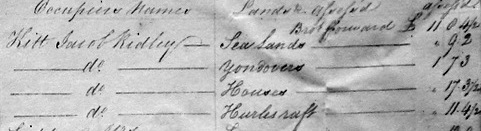 Occupiers Names Lands &c Assessed Assessed
Brot forward £ 11 0 4½
Kitt Jacob Ridley Sea Lands " 9 2
do Yondovers 1 7 3
do Houses " 17 3½
do Hurlescraft " 11 4½